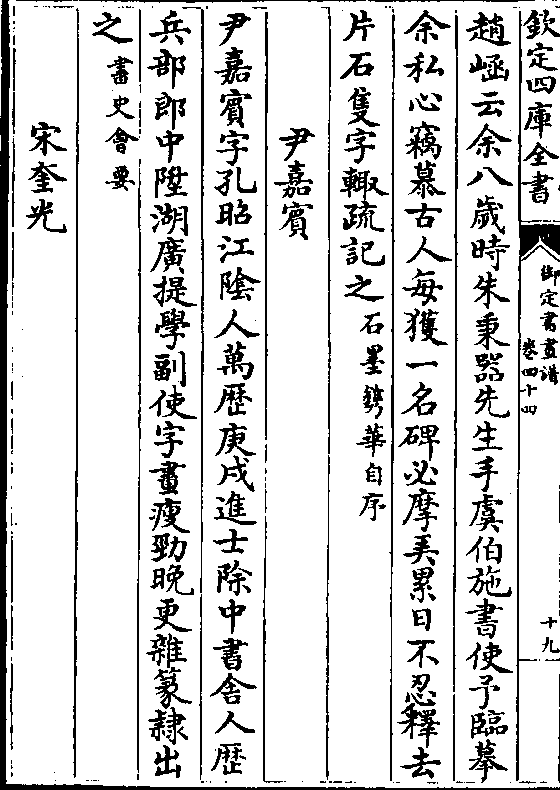 欽定四庫全書
御定書畫譜
卷四十四
十九
趙崡云余八歲時朱秉器先生手虞伯施書使予臨摹
余私心竊慕古人每獲一名碑必摩美累日不忍釋去
片石隻字輙疏記之石墨鐫華自序
尹嘉賓
尹嘉賓字孔昭江陰人萬歷庚戌進士除中書舍人歴
兵部郎中陞湖廣提學副使字畫瘦勁晩更雜篆隸出
之書史會要
宋奎光